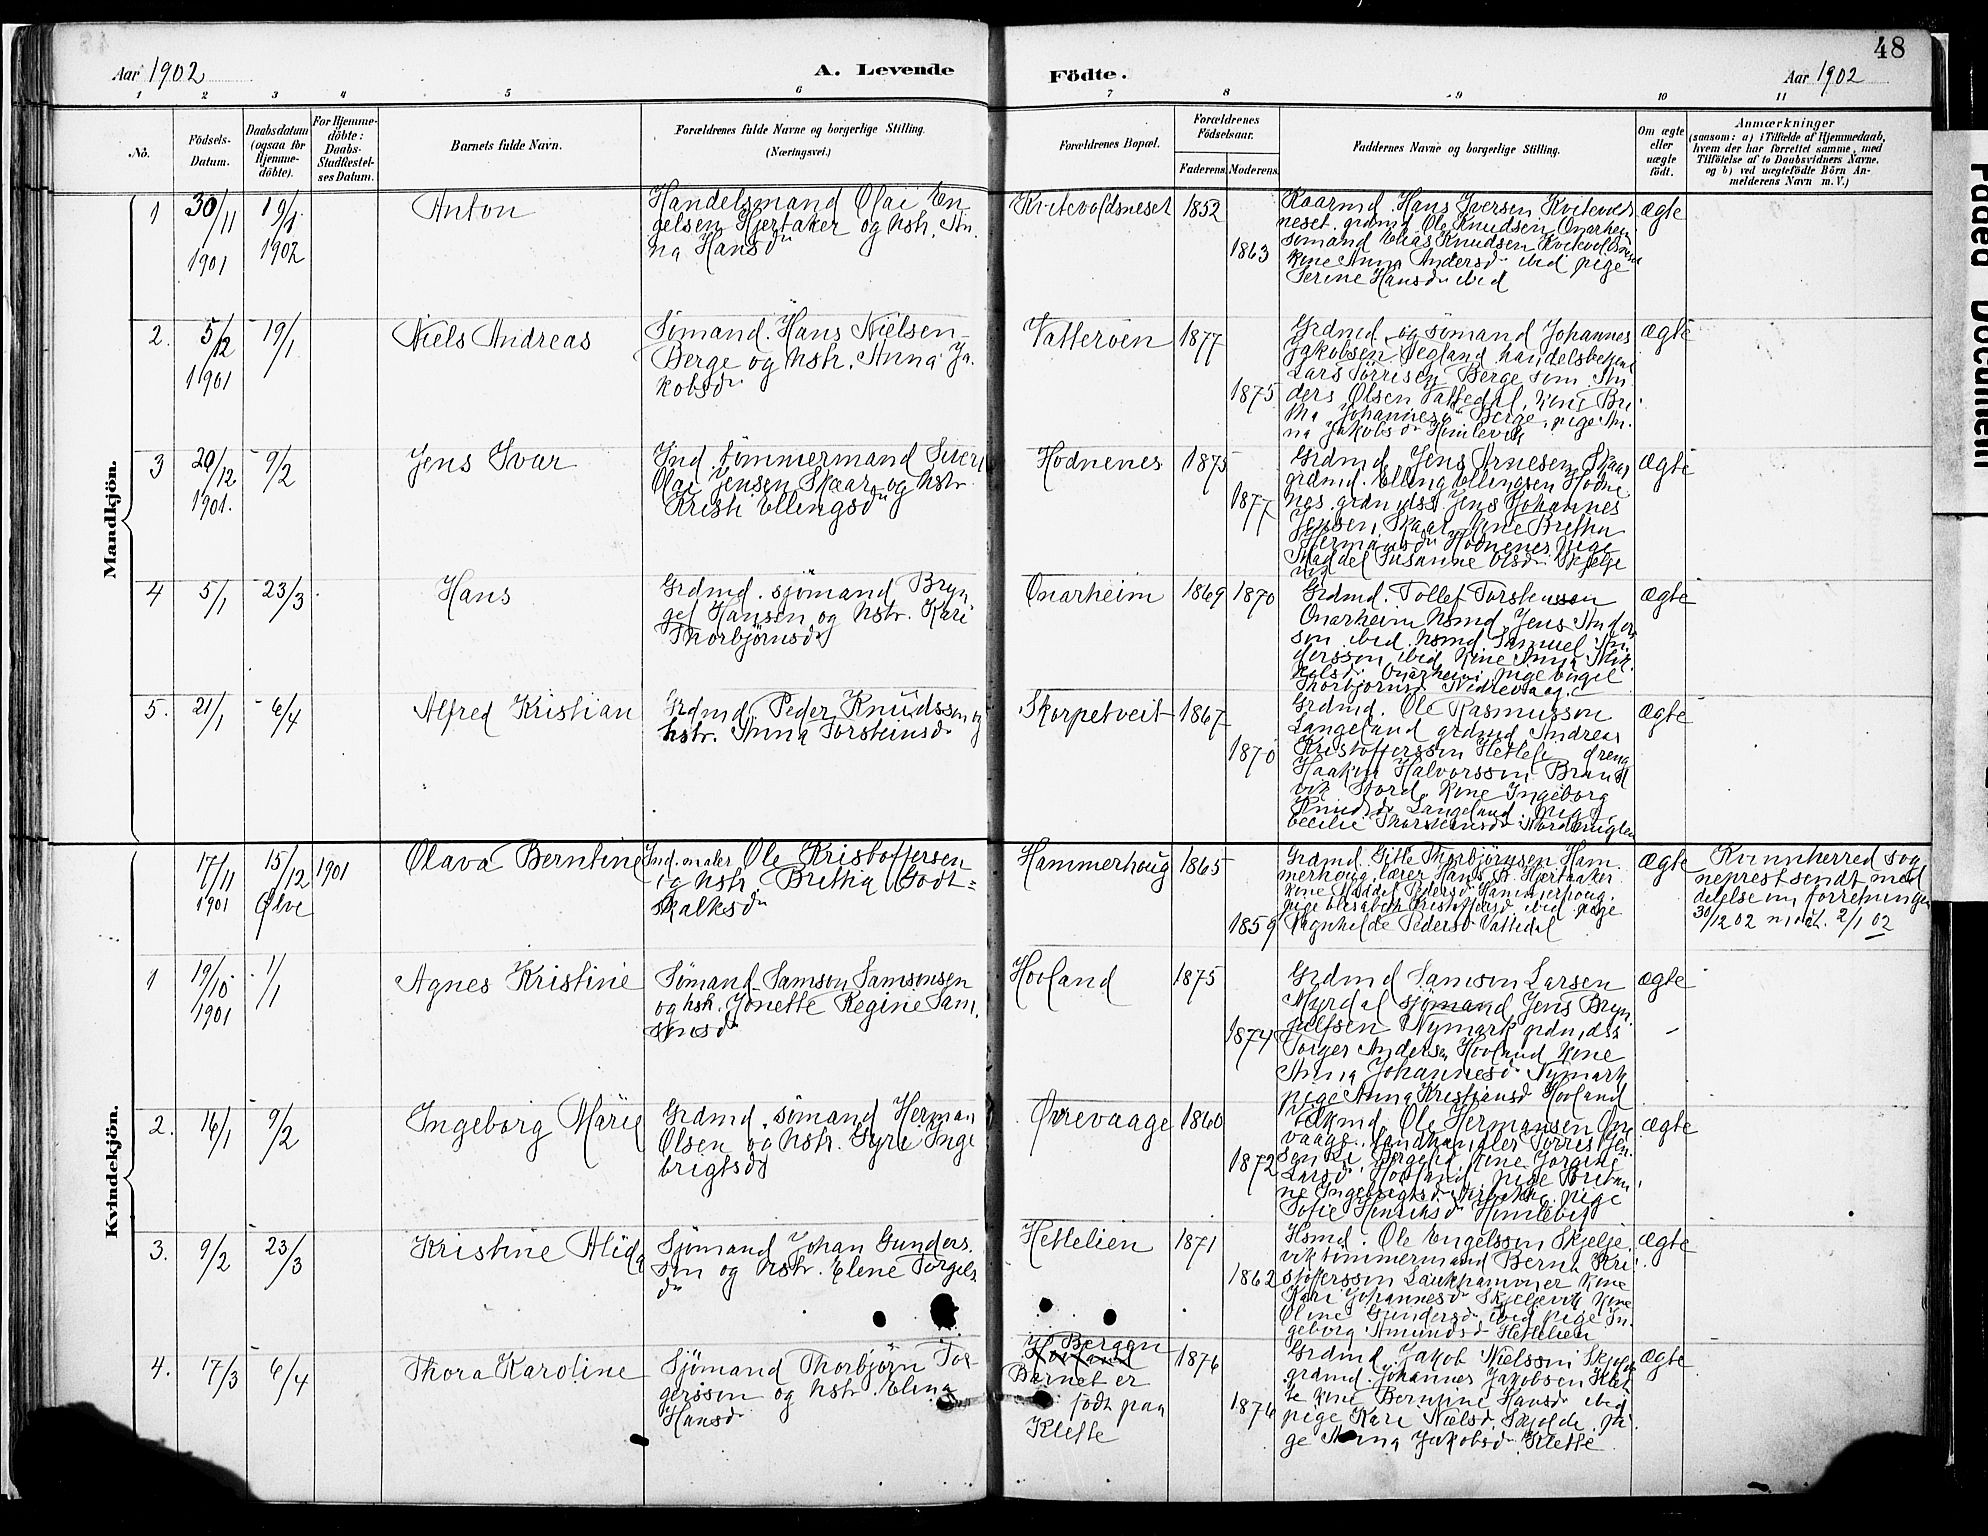 48
Aar 1902
A. Levende
Födte.
Aar 1902
1 2 3 4 5 6 7 8 9 10 11
No.
Födsels-
Datum.
Daabsdatum
(ogsaa for
Hjemme-
döbte).
For Hjemme-
döbte:
Daabs-
Stadfæstel-
ses Datum.
Barnets fulde Navn.
Forældrenes fulde Navne og borgerlige Stilling.
(Næringsvei.)
Forældrenes Bopæl.
Forældrenes
Födselsaar.
Faderens. Moderens.
Faddernes Navne og borgerlige Stilling.
Om ægte
eller
uægte
födt.
Anmærkninger
(saasom: a) i Tilfælde af Hjemmedaab,
hvem der har forrettet samme, med
Tilföielse af to Daabsvidners Navne,
og b) ved uægtefödte Börn An-
melderens Navn m. V.)
Mandkjön.
1
30/11
1901
19/1
1902
Anton
Handelsmand Olai En
gelsen Hjertaker og hstr. An
na Hansdr
Kvitevoldsneset
1852
1863
Kaarmd. Hans Iversen Kvitevolds
neset. grdmd. Ole Knudsen Onarheim
sømand Elias Knudsen
kone Anna Andersdr ibid pige
Serine Hansdr ibid
ægte
2.
5/12
1901
19/1
Niels Andreas
Sømand. Hans Nielsen
Berge og hstr. Anna Ja
kobsdr
Vatterøen
1877
1875
Grdmd. og sømand Johannes
Jakobsen Vegland handelsbetjent
Lars Tørrisen Berge søm. An
ders Olsen Vattedal, kone Bri
tha Johannesdr Berge, pige An
na Jakobsdr Himlevik
ægte
3
20/12
1901.
9/2
Jens Ivar
Ind. tømmermand Sivert
Olai Jensen Skaar og hstr
Kristi Ellingsdr
Hodnenes
1875
1877
Grdmd Jens Arnesen Skaar
grdmd. Elling Ellingsen Hodne
nes grdmdss Jens Johannes
Jensen Skaar kone Britha
Hermansdr Hodnenes pige
Maddel Susanne Olsdr Skjelje
vik
ægte
4
5/1
23/3
Hans
Grdmd. sjømand Bryn
gel Hansen og hstr. Kari
Thorbjørnsdr
Onarheim
1869
1870
Grdmd. Tollef Torstensson
Onarheim hsmd Jens Anders
son ibid. hsmd Samuel An
dersson ibid kone Anna Mik
kelsdr Onarheim pige Engel
Thorbjørnsdr Nedrevaage
ægte
5.
21/1
6/4
Alfred Kristian
Grdmd. Peder Knudsson og
hstr. Anna Torsteinsdr
Skorpetveit
1867
1870
Grdmd. Ole Rasmusson
Langeland grdmd Andreas
Kristoffersson Hettelie dreng
Haakon Halvorsson Brand
vik Stord. kone Ingeborg
Knudsdr Langeland, pige
Cecilie Thorsteinsdr Nordhuglen
ægte
Kvindekjön.
17/11
1901
15/12
Ølve
1901
Olava Berntine
Ind. maler Ole Kristoffersen
og hstr. Brithia Godt-
skalksdr
Hammerhoug
1865
1859
Grdmd. Gitle Thorbjørnsen Ham
merhoug. lærer Hans K. Hjertaaker
kone Maddel Pedersdr Hammerhoug.
pige Elisabeth Kristoffersdr ibid pige
Ragnhilde Pedersdr Vattedal
ægte
Kvinnherred sog
neprest sendt med
delelse om forretningen
30/12 02 2/1 02
1
19/10
1901
1/1
Agnes Kristine
Sømand Samson Samsonsen
og hstr. Jonette Regine Sam
sonsdr
Hovland
1875
1874
Grdmd Samson Larsen
Myrdal sjømand Jens Bryn
gelfsen Nymark grdmdss
Torger Andersen Hovland kone
Anna Johannesdr Nymark
pige Anna Kristiansdr Hovland
ægte
2.
16/1
9/2
Ingeborg Marie
Grdmd. sømand Herman
Olsen og hstr. Gyri Inge
brigtsdr
Øvrevaage
1860
1872
Ole Hermansen Øvre
vaage. landhandler Tørris Jen
sen kone Jorgine
Larsdr Hovland pige Britan
ne Ingebrigtsdr pige
Sofie Henriksdr Himlevik
ægte
3.
9/2
23/3
Kristine Alida
Sjømand Johan Gunders
sen og hstr. Elene Torgels
dr
Hettelien
1871
1862
Hsmd. Ole Engelsson Skjelje
vik tømmermand Bernt Kri
stoffersson Laukhammer kone
Kari Johannesdr Skjeljevik kone
Oline Gundersdr ibid pige In
geborg Amundsdr Hettelien
ægte
4.
17/3
6/4
Thora Karoline
Sjømand Thorbjörn Tor
gerssen og hstr. Elina
Hansdr
Bergen
Hovland
Barnet er
født paa
Klette
1876
1876
Grdmd. Jakob Nielssen Skjolde
grdmd. Johannes Jakobsen Klet
te kone Berntine Hansdr ibid
pige Kari Nielsdr Skjolde, pi
ge Anna Jakobsdr Klette
ægte